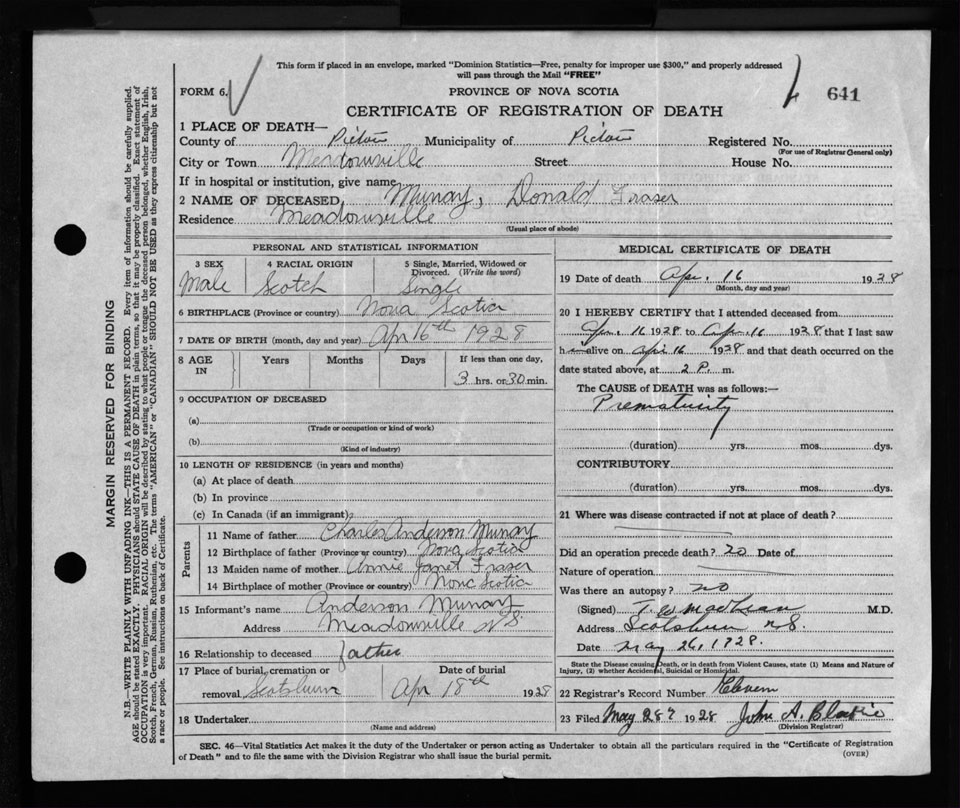 This form if placed in an envelope, marked "Dominion Statistics—Free, penalty for improper use $300," and properly addressed
will pass through the Mail "FREE"
FORM 6.
PROVINCE OF NOVA SCOTIA
641
CERTIFICATE OF REGISTRATION OF DEATH
1 PLACE OF DEATH—
County of Pictou Municipality of Pictou Registered No.
(For use of Registrar General only)
City or Town Meadowville Street House No.
If in hospital or institution, give name
2 NAME OF DECEASED Murray, Donald Fraser
Residence Meadowville
(Usual place of abode)
PERSONAL AND STATISTICAL INFORMATION
3 SEX 4 RACIAL ORIGIN 5 Single, Married, Widowed or
Divorced. (Write the word)
Male Scotch Single
6 BIRTHPLACE (Province or country) Nova Scotia
7 DATE OF BIRTH (month, day and year) Apr 16th 1928
8 AGE IN Years Months Days If less than one day,
3 hrs. or 30 min.
9 OCCUPATION OF DECEASED
(a)
(Trade or occupation or kind of work)
(b)
(Kind of industry)
10 LENGTH OF RESIDENCE (in years and months)
(a) At place of death
(b) In province
(c) In Canada (if an immigrant)
Parents
11 Name of father Charles Anderson Murray
12 Birthplace of father (Province or country) Nova Scotia
13 Maiden name of mother Annie Janet Fraser
14 Birthplace of mother (Province or country) Nova Scotia
15 Informant's name Anderson Murray
Address Meadowville N S.
16 Relationship to deceased father
17 Place of burial, cremation or Date of burial
removal Scotsburn Apr 18th 1928
18 Undertaker
(Name and address)
MEDICAL CERTIFICATE OF DEATH
19 Date of death Apr. 16 1928
(Month, day and year)
20 I HEREBY CERTIFY that I attended deceased from
Apr. 16 1928 to Apr. 16 1928 that I last saw
h alive on Apr 16 1928 and that death occurred on the
date stated above, at 2 P. m.
The CAUSE of DEATH was as follows:—
Prematurity
(duration) yrs. mos. dys.
CONTRIBUTORY
(duration) yrs. mos. dys.
21 Where was disease contracted if not at place of death?
Did an operation precede death? no Date of
Nature of operation
Was there an autopsy? no
(Signed) T. W. MacLean M.D.
Address Scotsburn N.S.
Date May 26, 1928.
State the Disease causing Death, or in death from Violent Causes, state (1) Means and Nature of
Injury, (2) whether Accidental, Suicidal or Homicidal.
22 Registrar's Record Number Eleven
23 Filed May 28 1928 John A. Blaikie
(Division Registrar)
SEC. 46—Vital Statistics Act makes it the duty of the Undertaker or person acting as Undertaker to obtain all the particulars required in the "Certificate of Registration
of Death" and to file the same with the Division Registrar who shall issue the burial permit.
(OVER)
MARGIN RESERVED FOR BINDING
N.B.—WRITE PLAINLY WITH UNFADING INK—THIS IS A PERMANENT RECORD. Every item of information should be carefully supplied.
AGE should be stated EXACTLY. PHYSICIANS should STATE CAUSE OF DEATH in plain terms, so that it may be properly classified. Exact statement of
OCCUPATION is very important. RACIAL ORIGIN will be described by stating to what people or tongue the deceased person belonged, whether English, Irish,
Scotch, French, German, Russian, Ruthenian, etc. The terms "AMERICAN" or "CANADIAN" SHOULD NOT BE USED as they express citizenship but not
a race or people. See instructions on back of Certificate.